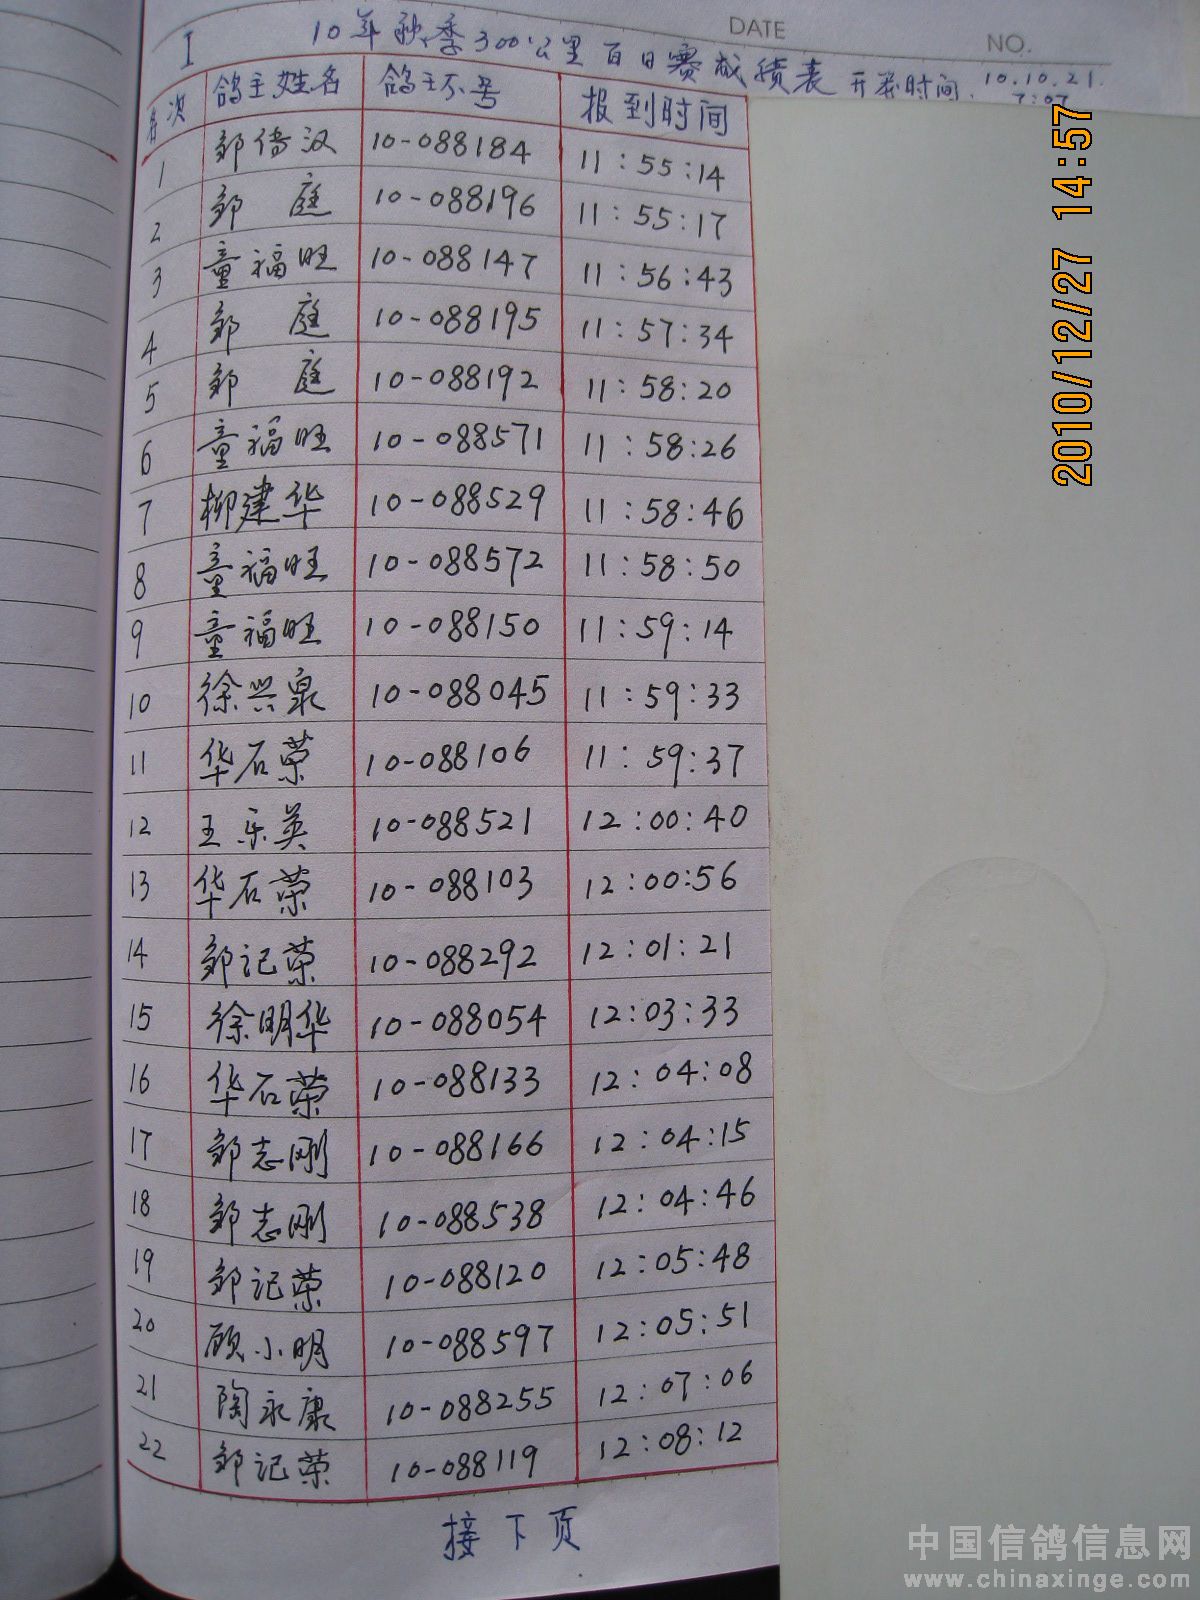 DATE
NO.
I
10年秋季300公里百日赛成绩表 开笼时间. 10.10.21. 7:07
名次 鸽主姓名 鸽环号 报到时间
1 邹传汉 10-088184 11:55:14
2 邹庭 10-088196 11:55:17
3 童福旺 10-088147 11:56:43
4 邹庭 10-088195 11:57:34
5 邹庭 10-088192 11:58:20
6 童福旺 10-088571 11:58:26
7 柳建华 10-088529 11:58:46
8 童福旺 10-088572 11:58:50
9 童福旺 10-088150 11:59:14
10 徐兴泉 10-088045 11:59:33
11 华石荣 10-088106 11:59:37
12 王乐英 10-088521 12:00:40
13 华石荣 10-088103 12:00:56
14 邹记荣 10-088292 12:01:21
15 徐明华 10-088054 12:03:33
16 华石荣 10-088133 12:04:08
17 邹志刚 10-088166 12:04:15
18 邹志刚 10-088538 12:04:46
19 邹记荣 10-088120 12:05:48
20 顾小明 10-088597 12:05:51
21 陶永康 10-088255 12:07:06
22 邹记荣 10-088119 12:08:12
接下页
2010/12/27 14:57
中国信鸽信息网
www.chinaxinge.com